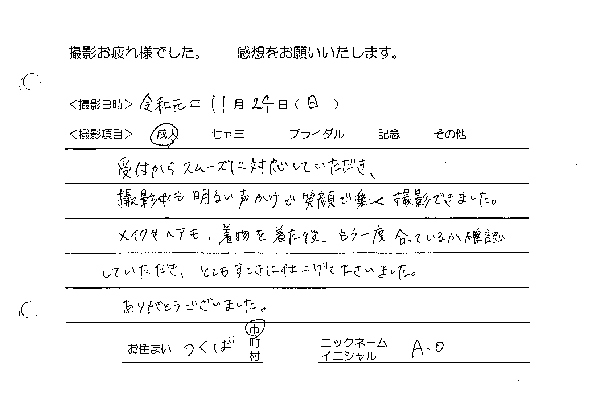 撮影お疲れ様でした。 感想をお願いいたします。
<撮影日時> 令和元年 11月24日(日)
<撮影項目> 成人 七五三 ブライダル 記念 その他
受付からスムーズに対応していただき、
撮影中も明るい声かけで笑顔で楽しく撮影できました。
メイクやヘアも、着物を着た後、もう一度合っているか確認
していただき、とてもすてきに仕上げて下さいました。
ありがとうございました。
お住まい つくば 市 町 村
ニックネーム イニシャル A.O